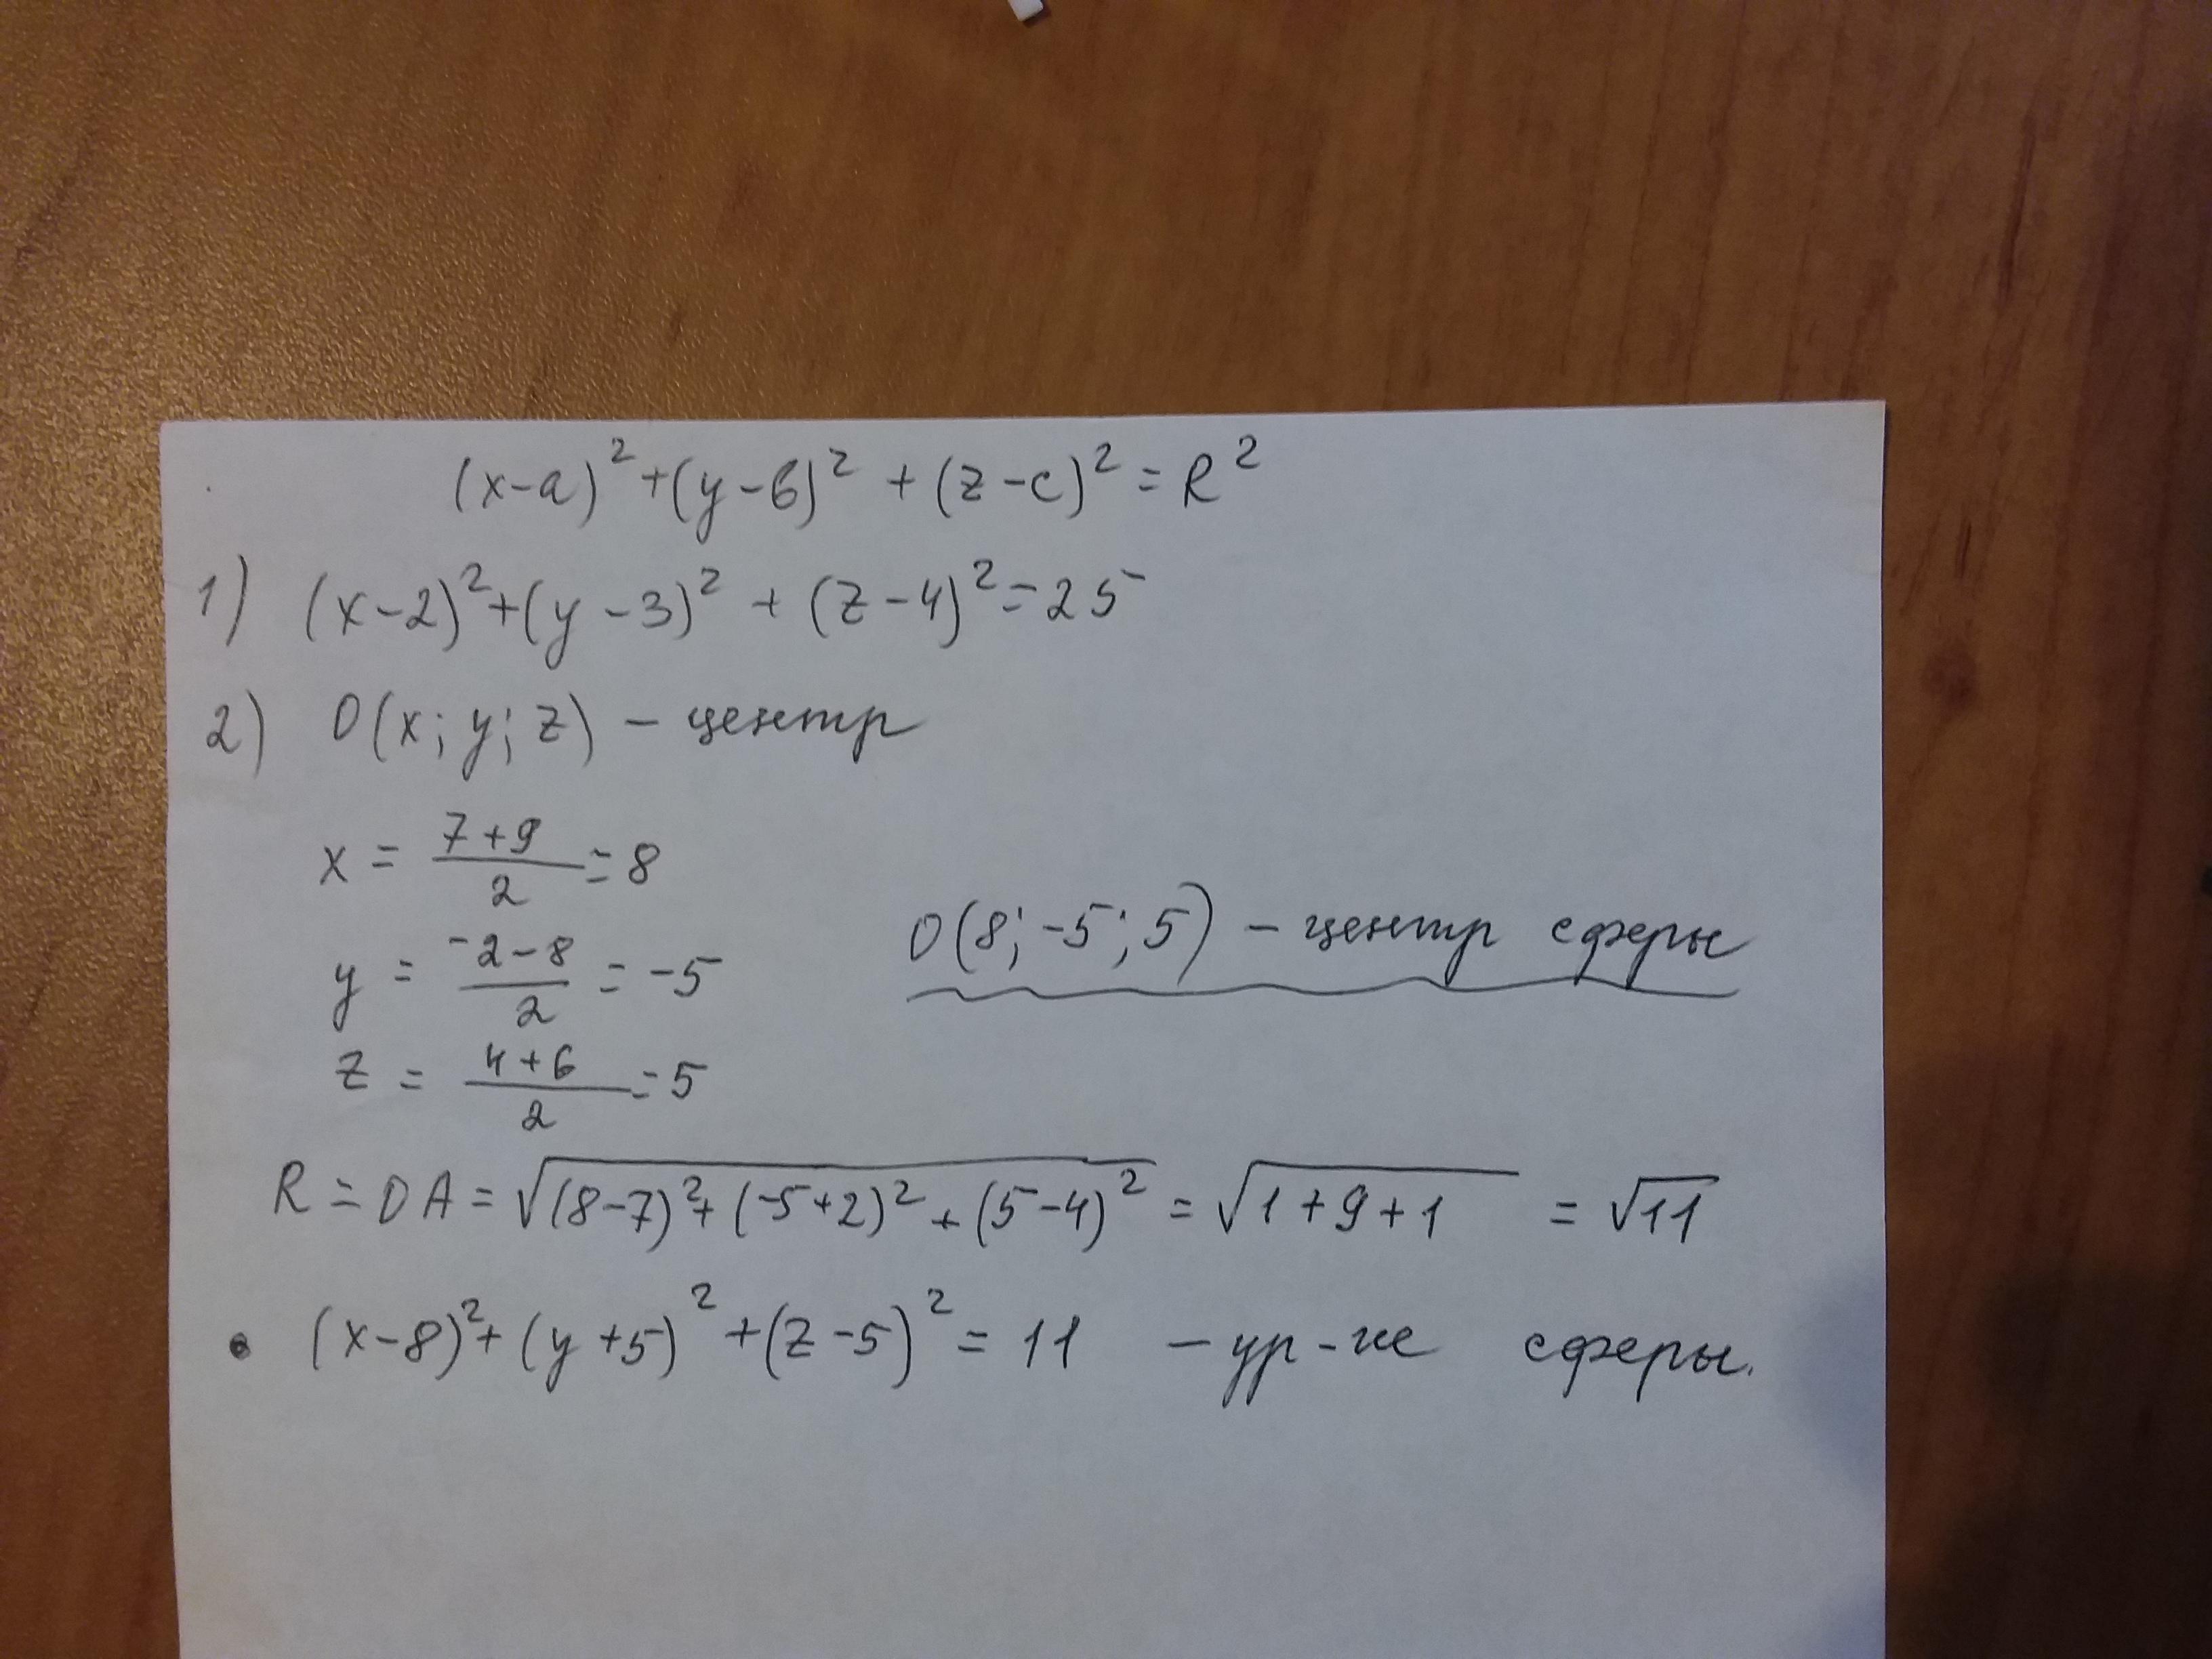 (x-a)² + (y-b)² + (z-c)² = R²
1) (x-2)² + (y-3)² + (z-4)² = 25
2) O(x; y; z) - центр
x = (7+9)/2 = 8
y = (-2-8)/2 = -5
z = (4+6)/2 = 5
O(8; -5; 5) - центр сферы
R = OA = √((8-7)² + (-5+2)² + (5-4)²) = √(1+9+1) = √11
• (x-8)² + (y+5)² + (z-5)² = 11 - ур-не сферы.